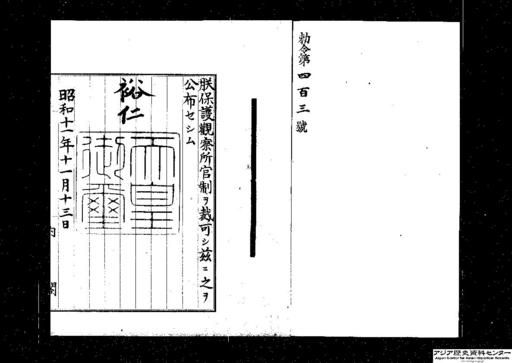 勅令第四百三號
朕保護觀察所官制ヲ裁可シ茲ニ之ヲ
公布セシム
裕仁
天皇
御璽
昭和十一年十一月十三日
内閣
アジア歴史資料センター
Japan Center for Asian Historical Records